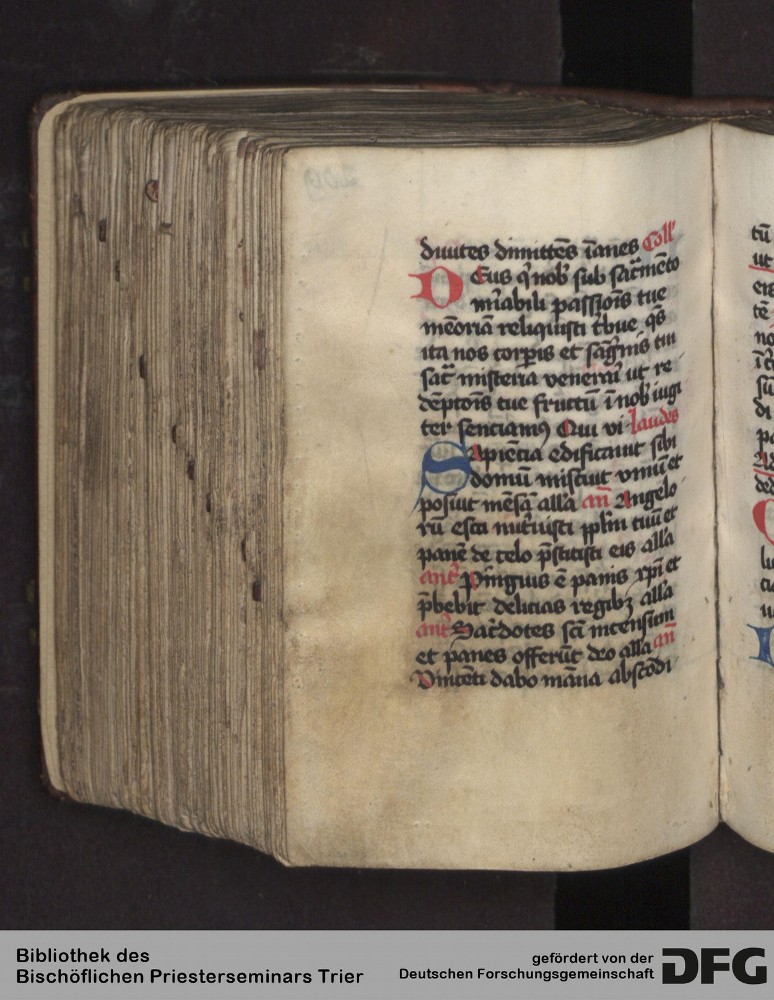 diuites dimittēs īanes Coll'
DEus q' nob' sub sac̄mēto
mirabili passiōis tue
mēoriā reliquisti tbue qs
ita nos corpis et sāgnis tui
sac̄ misteria venerari ut re
dēptōis tue fructū ī nob' iugi
ter senciamꝰ Qui vi Laudes
Sapiēcia edificauit sibi
domū miscuit vinū et
posuit mēsā all'a an̄ Angelo
rū esca nutriuisti pplm tuū et
panē de celo pstitisti eis all'a
ant' Pinguis ē panis xpi et
p̄bebit delicias regibꝫ all'a
ant' Sac̄dotes sci incensum
et panes offerūt deo all'a an̄
Vincēti dabo māna abscōdi
Bibliothek des
Bischöflichen Priesterseminars Trier
gefördert von der
Deutschen Forschungsgemeinschaft
DFG